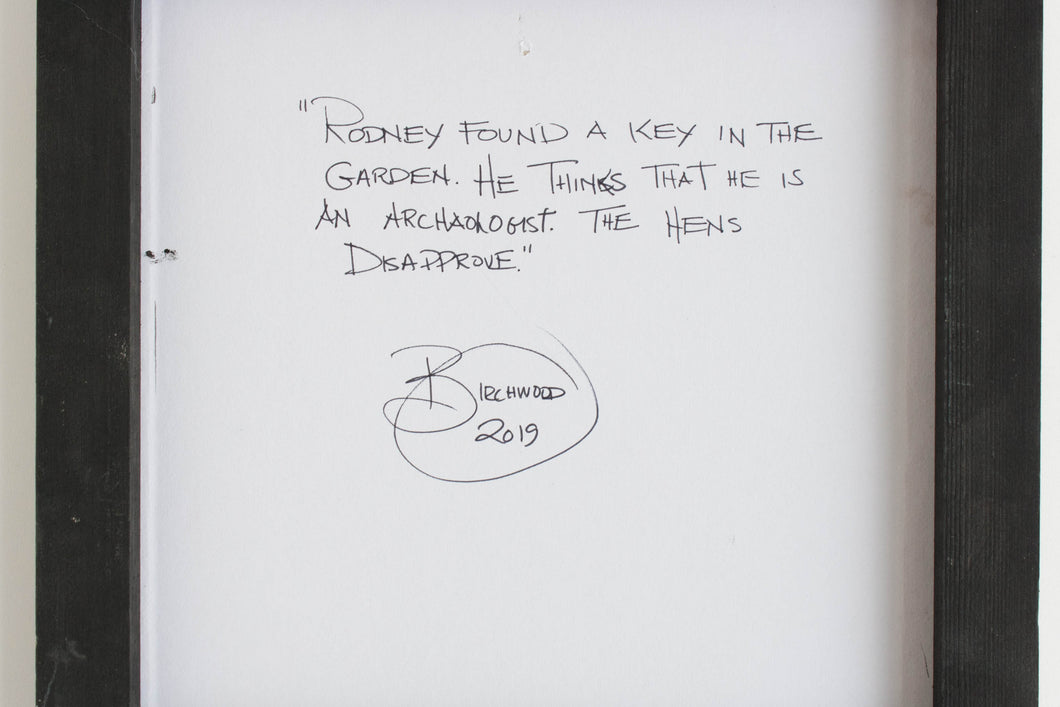 "RODNEY FOUND A KEY IN THE
GARDEN. HE THINKS THAT HE IS
AN ARCHAOLOGIST. THE HENS
DISAPPROVE."
BIRCHWOOD
2019